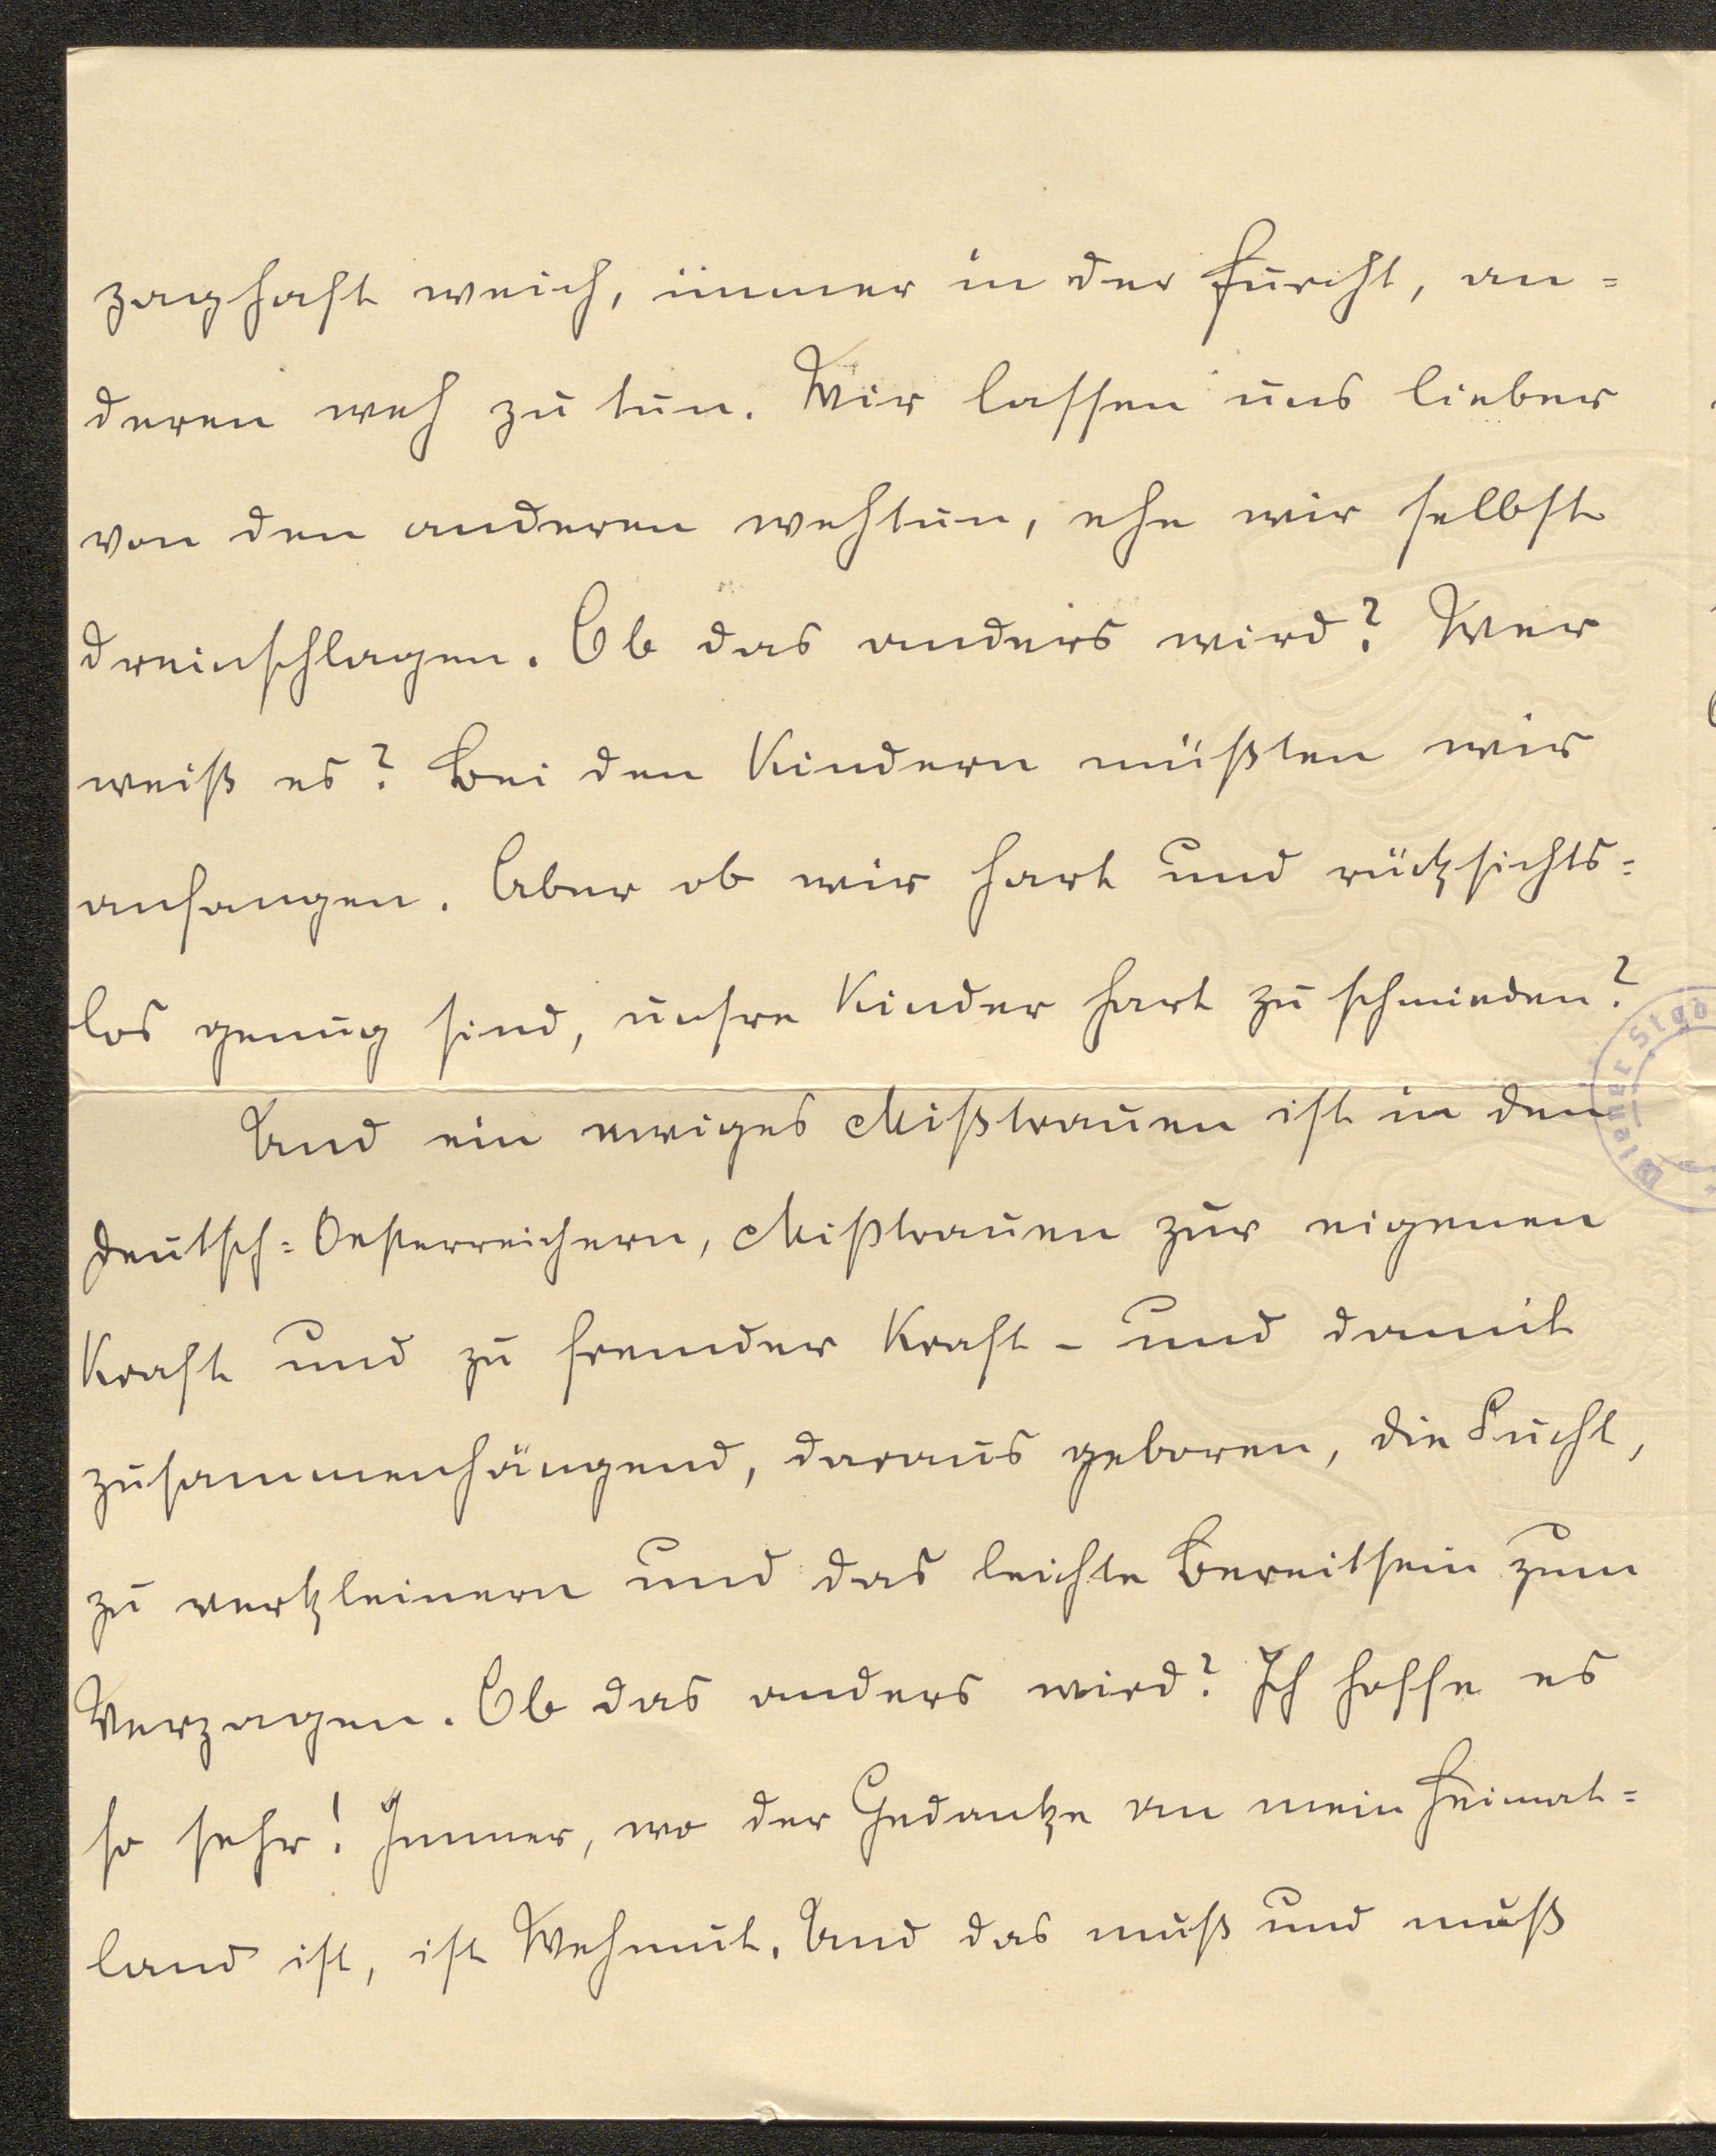 zaghaft weich, immer in der Furcht, an=
deren weh zu tun. Wir lassen uns lieber
von den anderen wehtun, ehe wir selbst
dreinschlagen. Ob das anders wird? Wer
weiß es? Bei den Kindern müßten wir
anfangen. Aber ob wir hart und rücksichts=
los genug sind, unsre Kinder hart zu schmieden?
Und ein ewiges Mißtrauen ist in den
Deutsch=Oesterreichern, Mißtrauen zur eigenen
Kraft und zu fremder Kraft – und damit
zusammenhängend, daraus geboren, die Sucht,
zu verkleinern und das leichte Bereitsein zum
Verzagen. Ob das anders wird? Ich hoffe es
so sehr! Immer, wo der Gedanke an mein Heimat=
land ist, ist Wehmut. Und das muß und muß
Wiener Stad